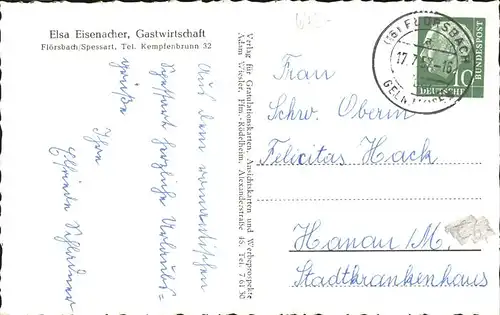 Elsa Eisenacher, Gastwirtschaft
Flörsbach/Spessart, Tel. Kempfenbrunn 32
Aus dem romantischen
Spessart herzliche Urlaubs=
grüße
Ihre
Elfriede
Verlag für Gratulationskarten, Ansichtskarten und Werbeprospekte
Adam Wiesler, Ffm.-Rödelheim, Alexanderstraße 45, Tel. 7 61 30
(16) FLÖRSBACH
17.7.
DEUTSCHE
BUNDESPOST
10
Frau
Schw. Oberin
Felicitas Hack
Hanau/M.
Stadtkrankenhaus